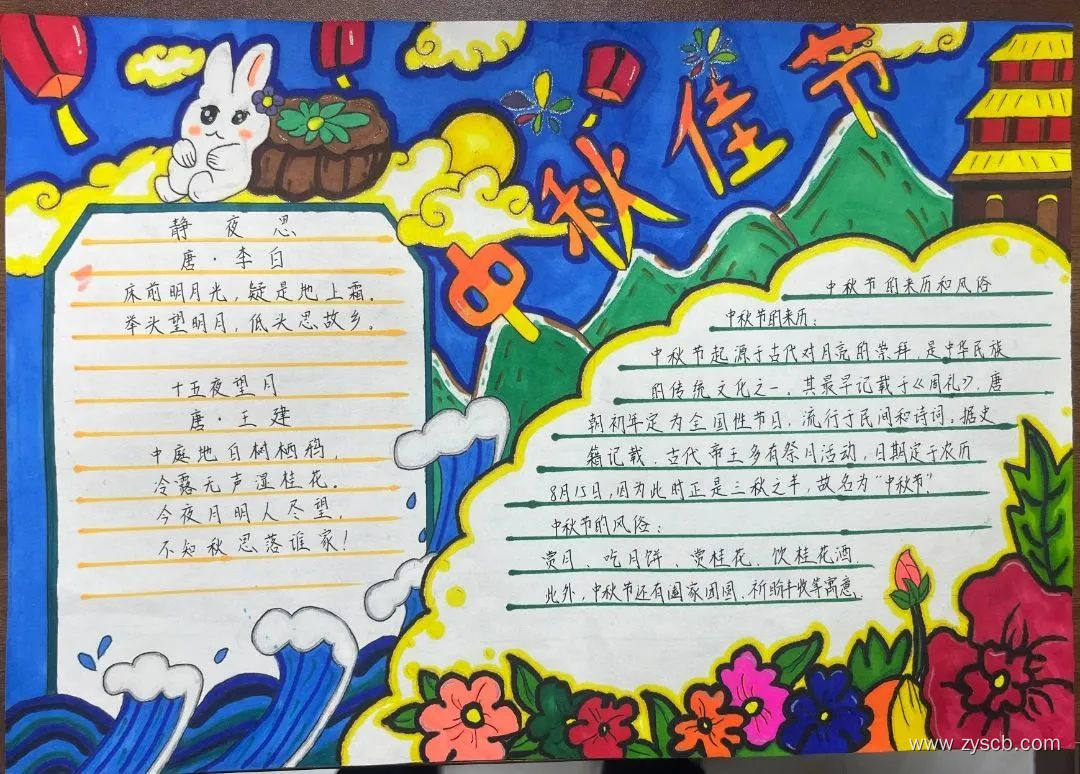 中秋佳节
静夜思
唐·李白
床前明月光，疑是地上霜。
举头望明月，低头思故乡。
十五夜望月
唐·王建
中庭地白树栖鸦，
冷露无声湿桂花。
今夜月明人尽望，
不知秋思落谁家！
中秋节的来历和风俗
中秋节的来历：
中秋节起源于古代对月亮的崇拜，是中华民族
的传统文化之一。其最早记载于《周礼》，唐
朝初年定为全国性节日，流行于民间和诗词。据史
籍记载，古代帝王多有祭月活动，日期定于农历
8月15日，因为此时正是三秋之半，故名为“中秋节”。
中秋节的风俗：
赏月、吃月饼、赏桂花、饮桂花酒，
此外，中秋节还有阖家团圆、祈盼丰收等寓意。
www.zyscb.com